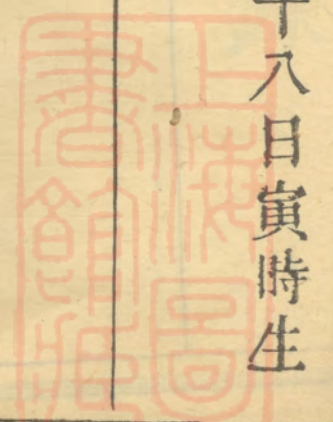 十八日寅時生
上海圖
書館藏